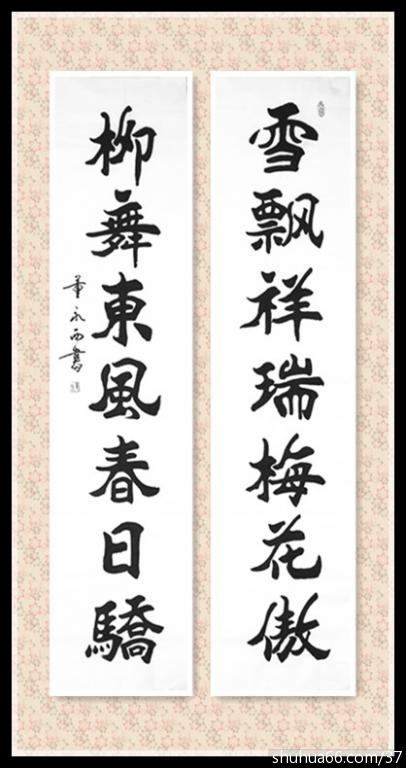 雪飘祥瑞梅花傲
柳舞東風春日驕
董永西書
shuhua66.com/37